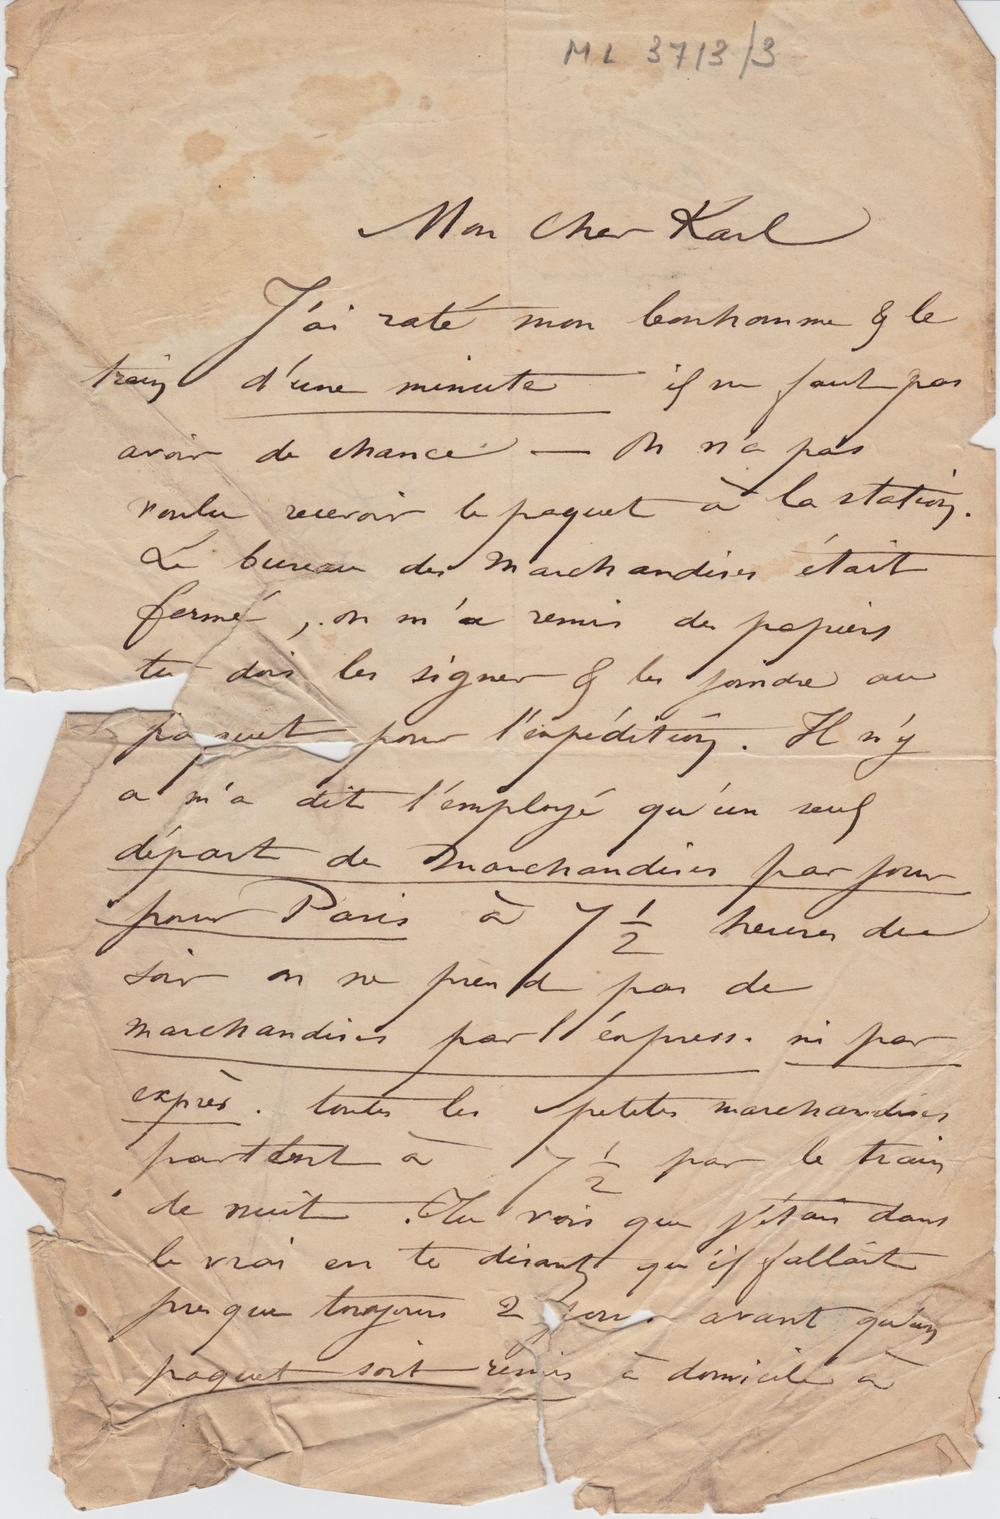 ML 3713/3
Mon cher Karl
J'ai raté mon bonhomme & le
train d'une minute il ne faut pas
avoir de chance — On n'a pas
voulu recevoir le paquet à la station.
Le bureau des Marchandises était
fermé, on m'a remis des papiers
tu dois les signer & les joindre au
paquet pour l'expédition. Il n'y
a m'a dit l'employé qu'un seul
départ de Marchandises par jour
pour Paris à 7 1/2 heures du
soir on ne prend pas de
marchandises par l'express. ni par
exprès. toutes les petites marchandises
partent à 7 1/2 par le train
de nuit. Tu vois que j'étais dans
le vrai en te disant qu'il fallait
presque toujours 2 jours avant qu'un
paquet soit remis à domicile à